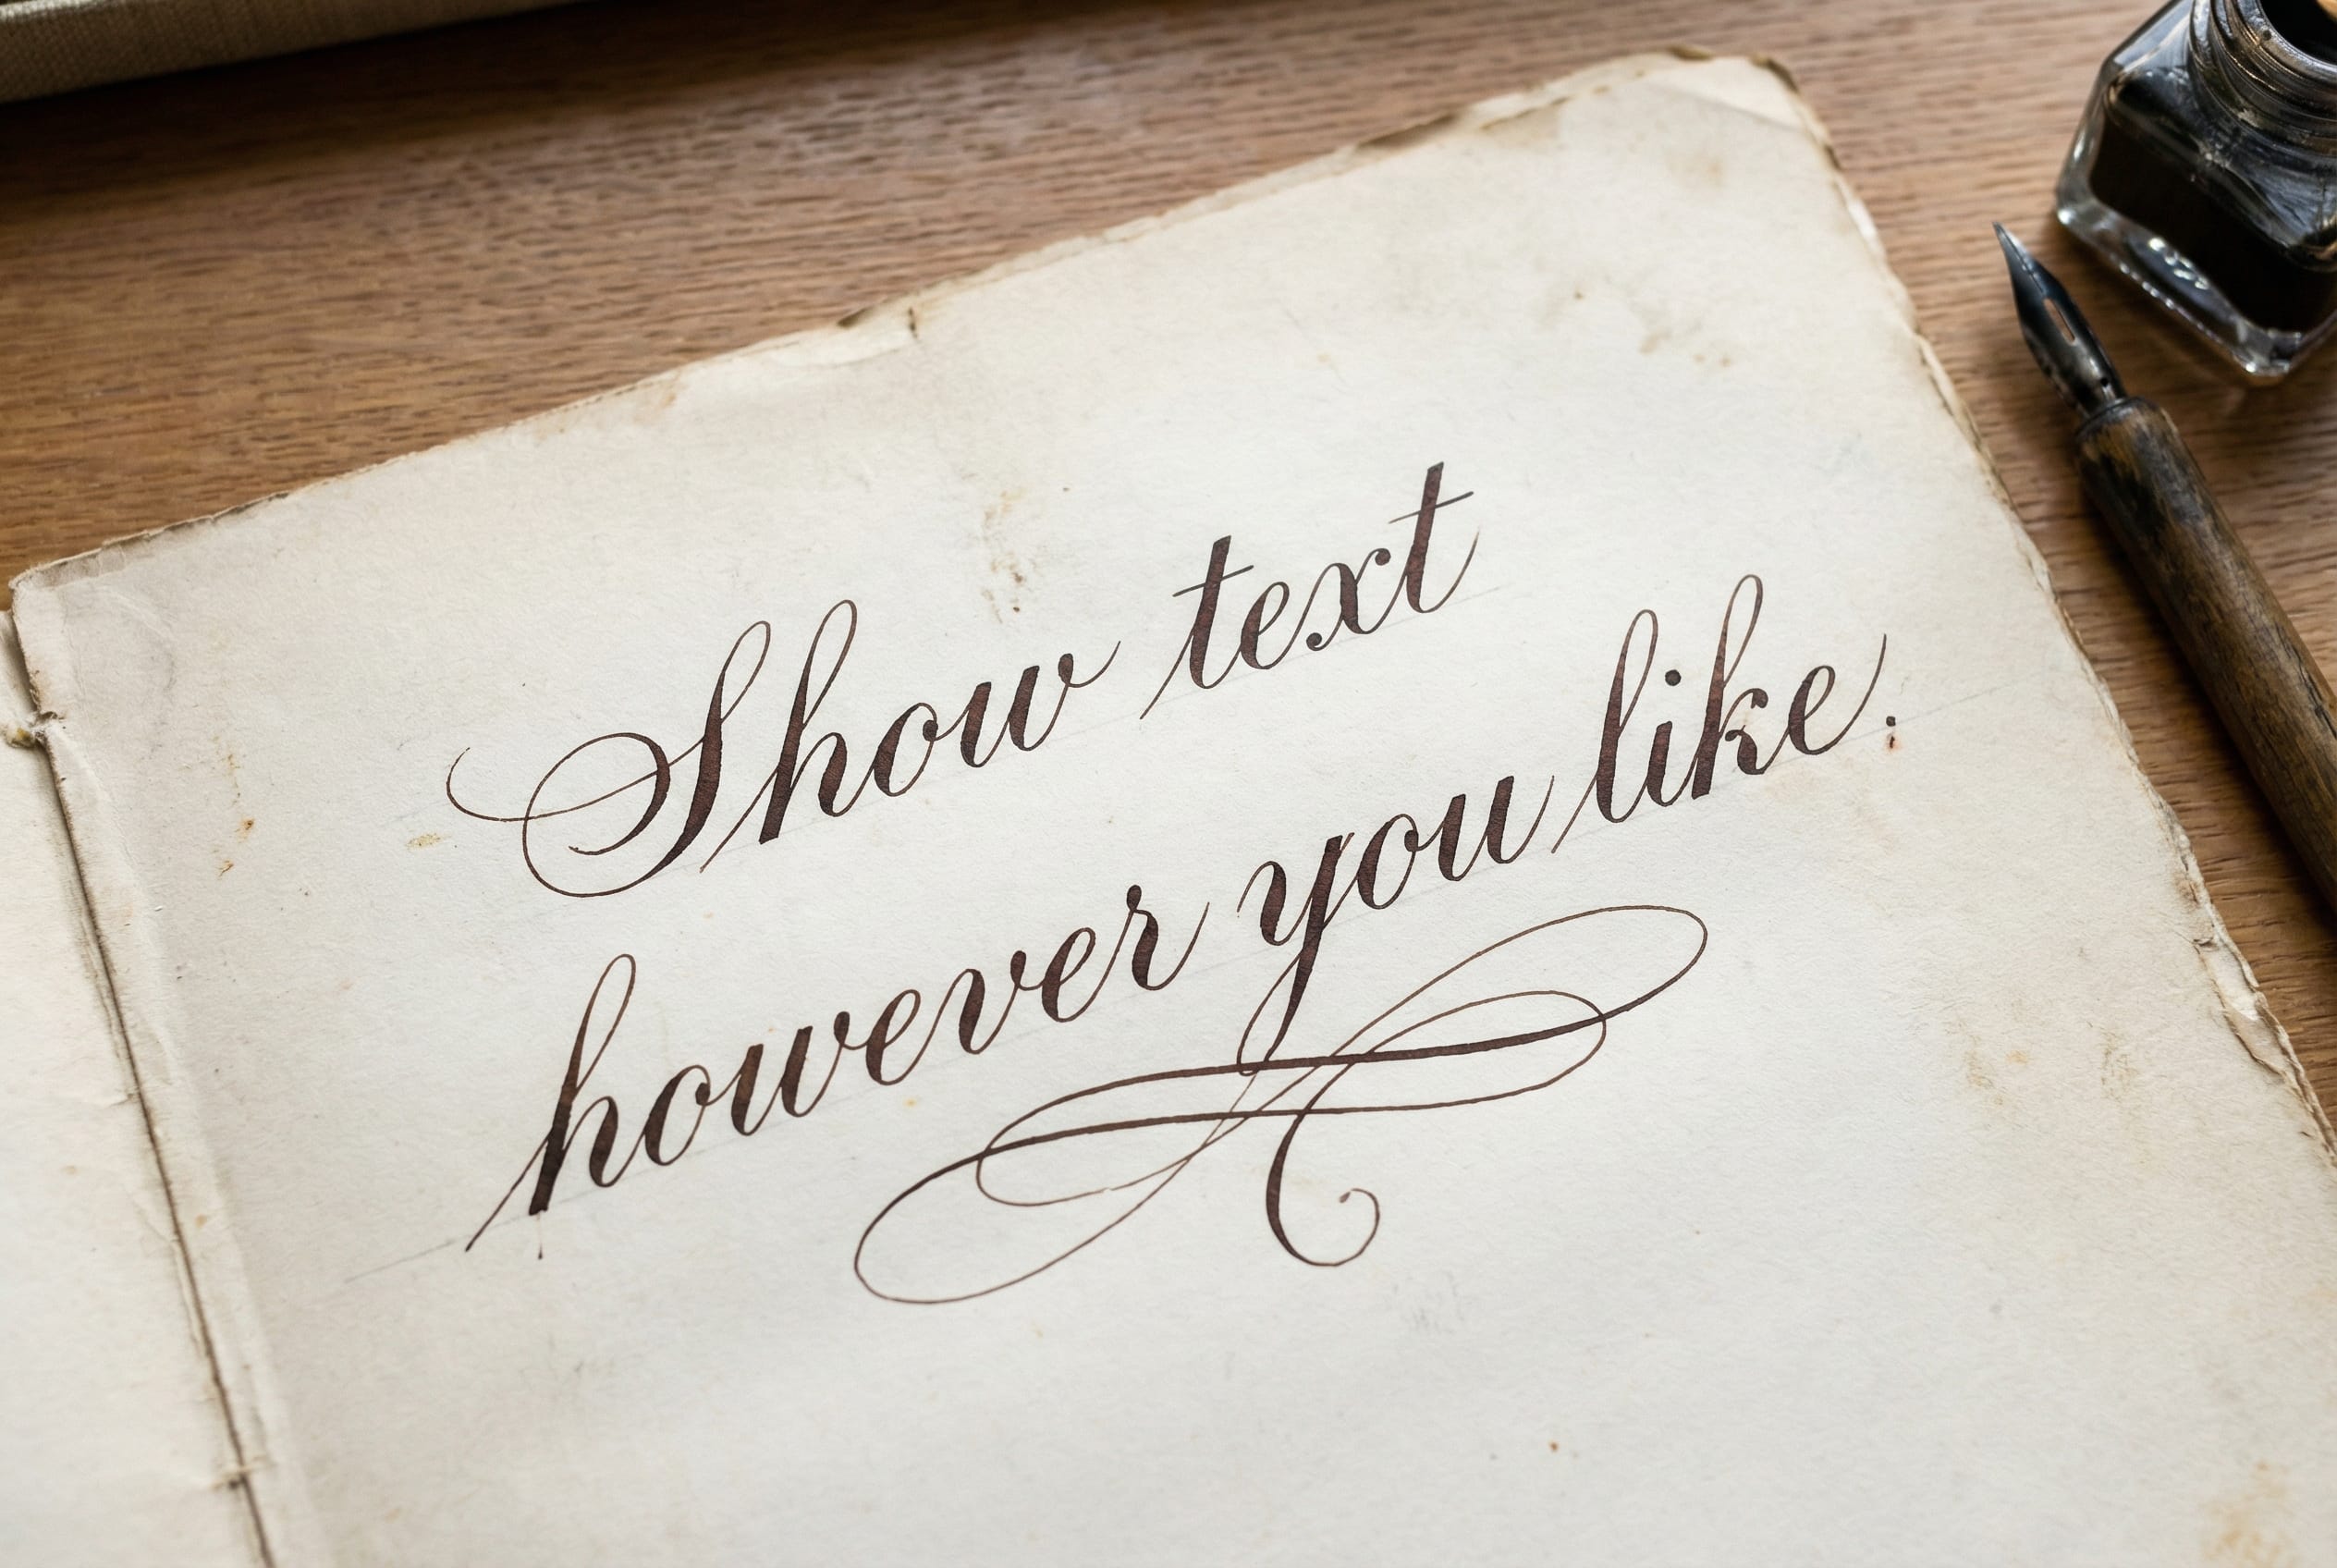 Show text
however you like.